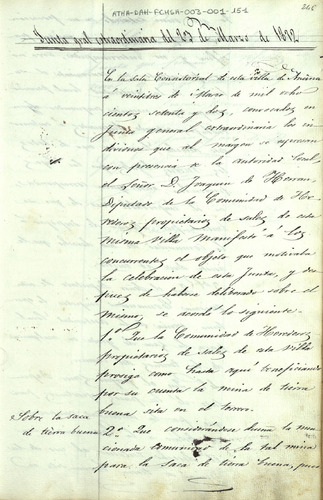 ATHA-DAH-FCHSA-003-001-15-1
Junta gral extraordinaria del 23 de Marzo de 1872
En la sala Consistorial de esta Villa de Anãna
á veintitres de Marzo de mil ocho
cientos setenta y dos, convocados en
Junta general extraordinaria los in
dividuos que al margen se espresan
con presencia de la autoridad local,
el Señor D. Joaquin de Herran,
Diputado de la Comunidad de He
rederos propietarios de sales de esta
misma Villa manifestó á los
concurrentes el objeto que motivaba
la celebracion de esta Junta, y des
pues de haberse deliberado sobre el
mismo, se acordó lo siguiente.
1º Que la Comunidad de Herederos
propietarios de sales de esta villa
prosiga como hasta aqui beneficiando
por su cuenta la mina de tierra
buena sita en el
Sobre la saca
de tierra buena
2º Que considerandose buena la men
cionada de la tal mina
para la saca de tierra buena, pues